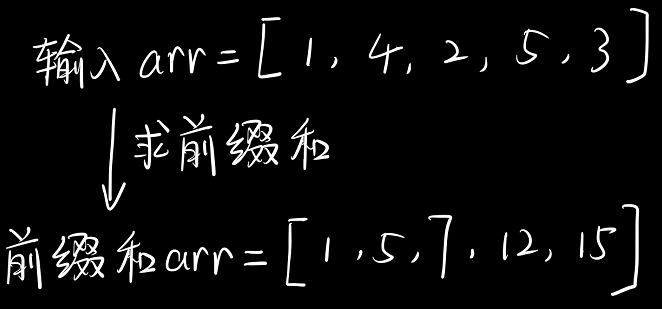 输入 arr = [ 1, 4, 2, 5, 3 ]
求前缀和
前缀和arr = [ 1, 5, 7, 12, 15 ]